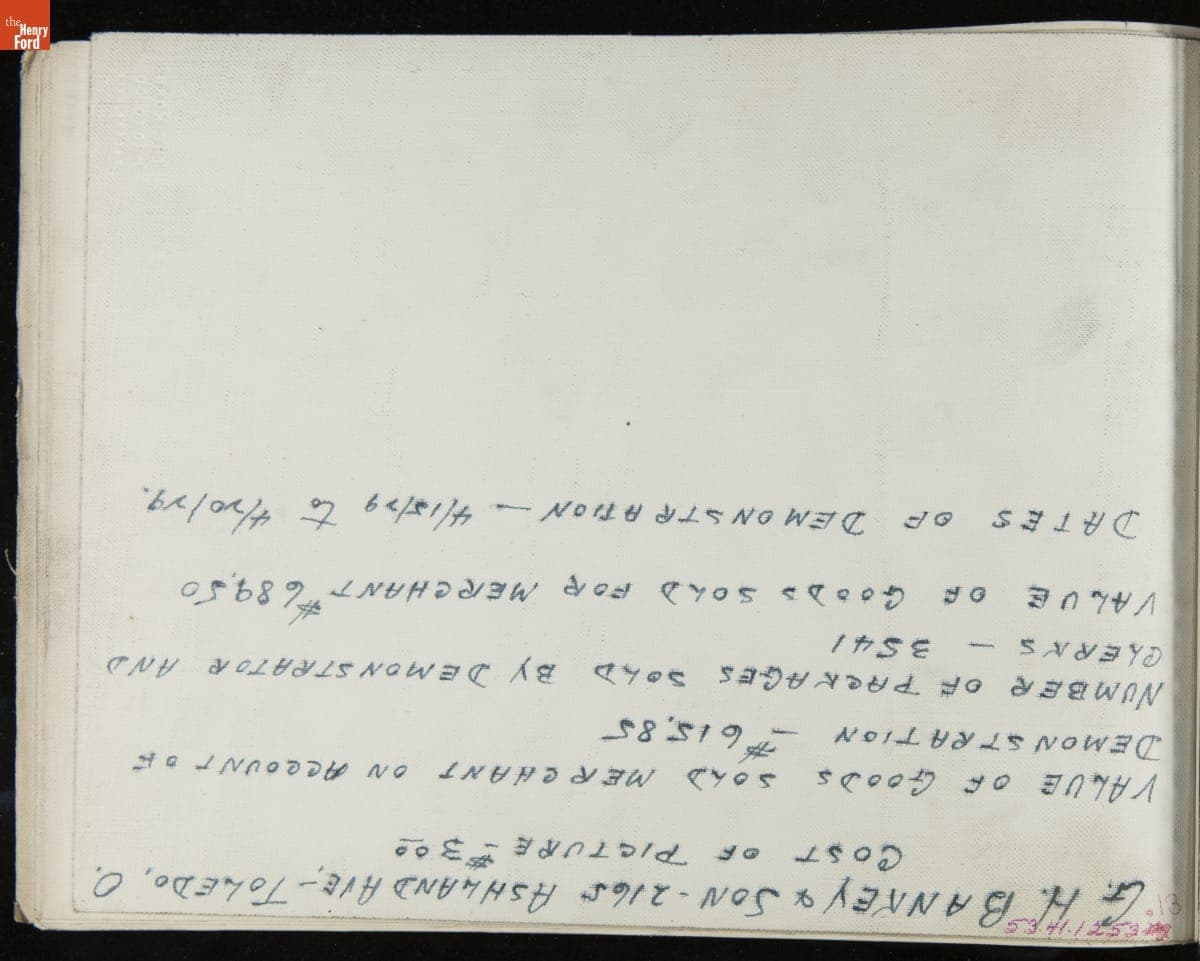 the
Henry
Ford
G. H. BANKEY & SON - 2165 ASHLAND AVE, - TOLEDO, O.
COST OF PICTURE - $3.00
VALUE OF GOODS SOLD MERCHANT ON ACCOUNT OF
DEMONSTRATION - $615.85
NUMBER OF PACKAGES SOLD BY DEMONSTRATOR AND
CLERKS - 3541
VALUE OF GOODS SOLD FOR MERCHANT $689.50
DATES OF DEMONSTRATION - 4/15/29 to 4/20/29.
53.41.1253